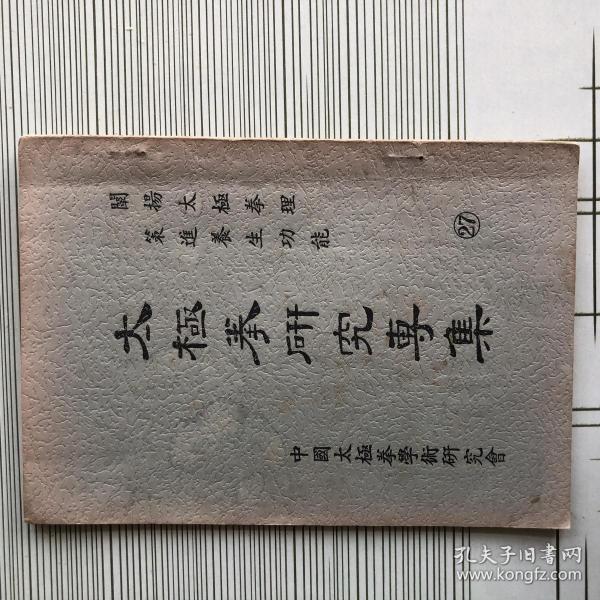 闡揚太極拳理
策進養生功能
㉗
太極拳研究專集
中國太極拳學術研究會
孔夫子旧書网
www.kongfz.com